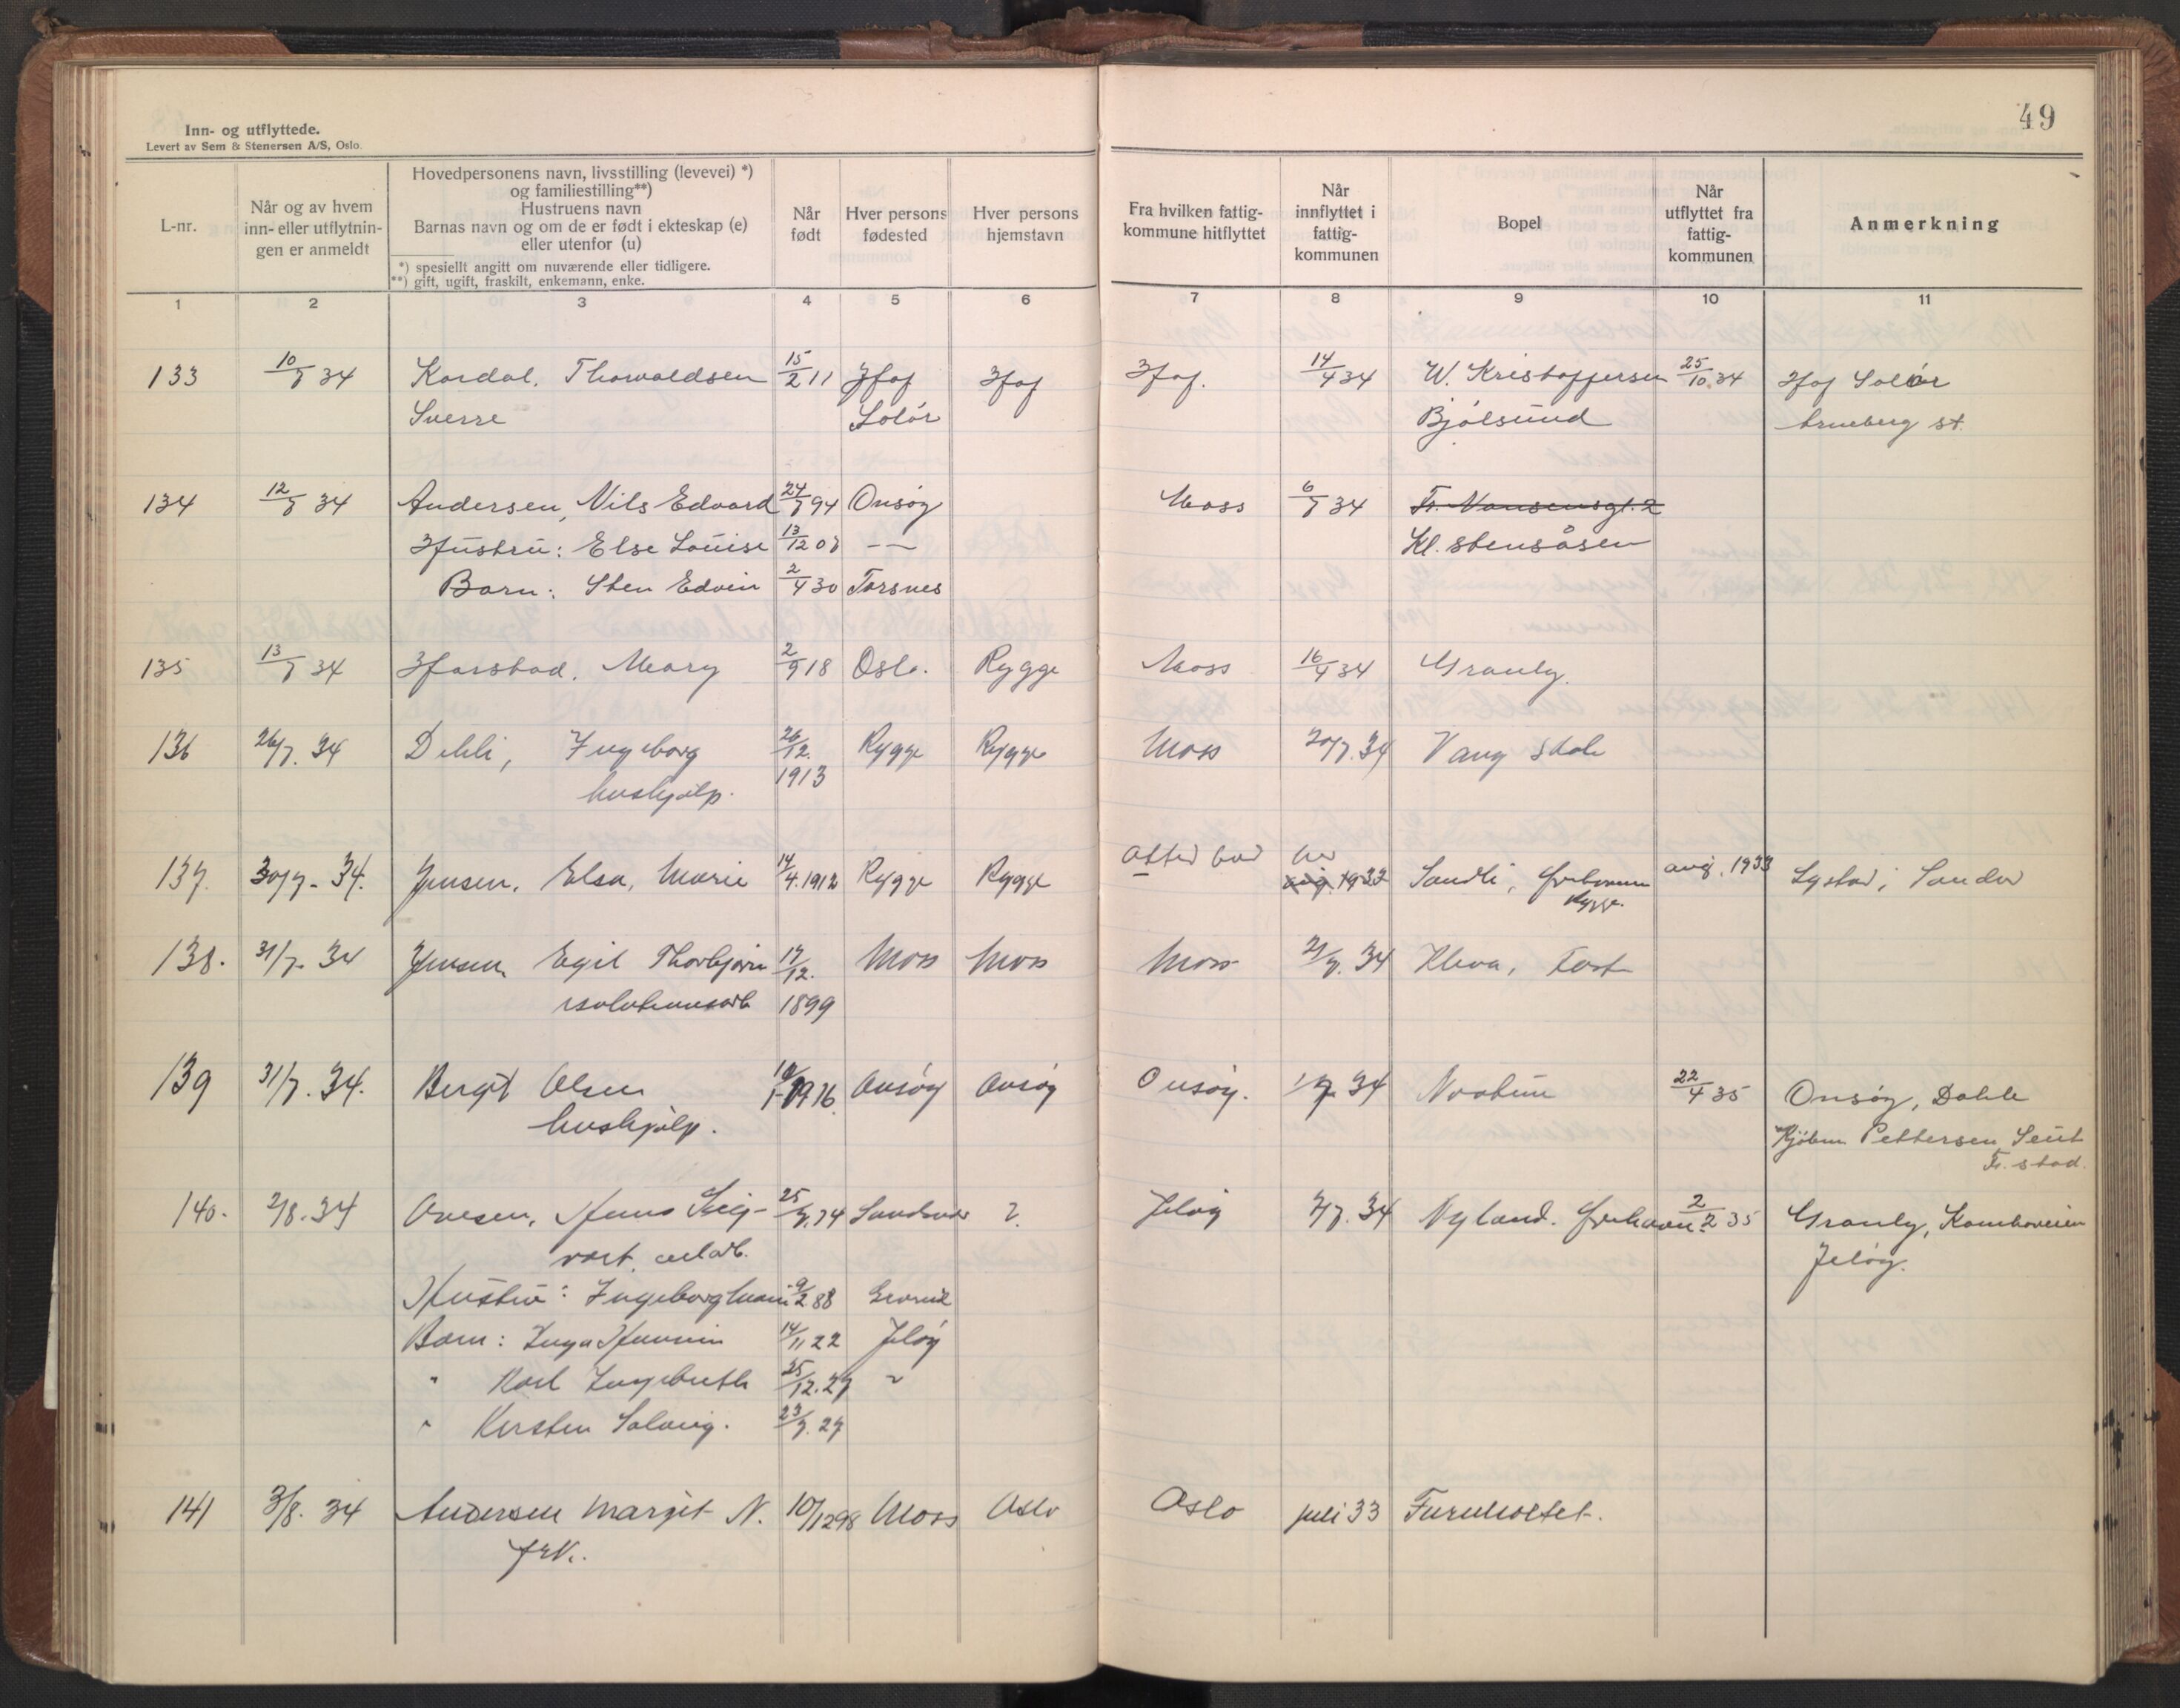 49
Inn- og utflyttede.
Levert av Sem & Stenersen A/S, Oslo.
L-nr.
Når og av hvem
inn- eller utflytnin-
gen er anmeldt
Hovedpersonens navn, livsstilling (levevei) *)
og familiestilling**)
Hustruens navn
Barnas navn og om de er født i ekteskap (e)
eller utenfor (u)
*) spesiellt angitt om nuværende eller tidligere.
**) gift, ugift, fraskilt, enkemann, enke.
Når
født
Hver persons
fødested
Hver persons
hjemstavn
Fra hvilken fattig-
kommune hitflyttet
Når
innflyttet i
fattig-
kommunen
Bopel
Når
utflyttet fra
fattig-
kommunen
Anmerkning
1 2 3 4 5 6 7 8 9 10 11
133 10/7 34 Kordal, Thorvaldsen 15/2 11 Hof Hof Hof. 14/4 34 W. Kristoffersen 25/10.34 Hof Solør
Sverre Solør Bjølsund Arneberg st.
134 12/7 34 Andersen, Nils Edvard 24/7 94 Onsøy Moss 6/7 34 Fr. Nansensgt. 2
Hustru: Else Louise 13/12 07 -"- Kl. Stensåsen
Barn: Sten Edvin 2/4 30 Torsnes
135 13/7 34 Harstad, Mary 2/9 18 Oslo. Rygge Moss 16/4 34 Granly.
136 26/7. 34 Dehli, Ingeborg 26/12. Rygge Rygge Moss 20/7. 34 Vang skole
hushjelp. 1913
137. 30/7- 34. Jensen, Elsa, Marie 14/4. 1912 Rygge Rygge Alltid bod her
aug. 1933 Sandli, aug. 1933
Rygge.
138. 31/7- 34 Jensen, Egil Thorbjørn 17/12. Moss Moss Moss 34 Kleva,
1899
139 31/7. 34. Bergit Olsen 1916. Onsøy Onsøy Onsøy. 34 22/4 35 Onsøy, Dahle
hushjelp. Pettersen, Seut
Fr.stad.
140. 2/8. 34 Ovesen, Hans 25/7. 74 ? Jeløy 7. 34 Nyland. 2/2 35 Granly,
Jeløy.
Hustru: Ingeborg 9/2 88
Barn: Inga 14/11 22 Jeløy
" Karl 25/12. 27 "
" Kirsten Solveig. 23/7. 27
141 3/8. 34 Andersen Margit N. 10/12 98 Moss Oslo Oslo juli 33 Furuholtet.
frk.